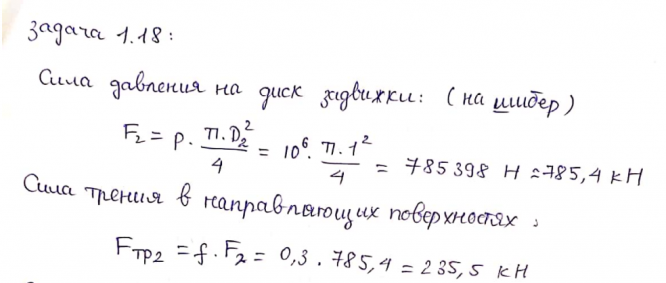 Задача 1.18:
Сила давления на диск задвижки: (на шибер)
F₂ = p · π·D₂²/4 = 10⁶ · π·1²/4 = 785398 Н ≈ 785,4 кН
Сила трения в направляющих поверхностях,
Fтр2 = f · F₂ = 0,3 · 785,4 = 235,5 кН